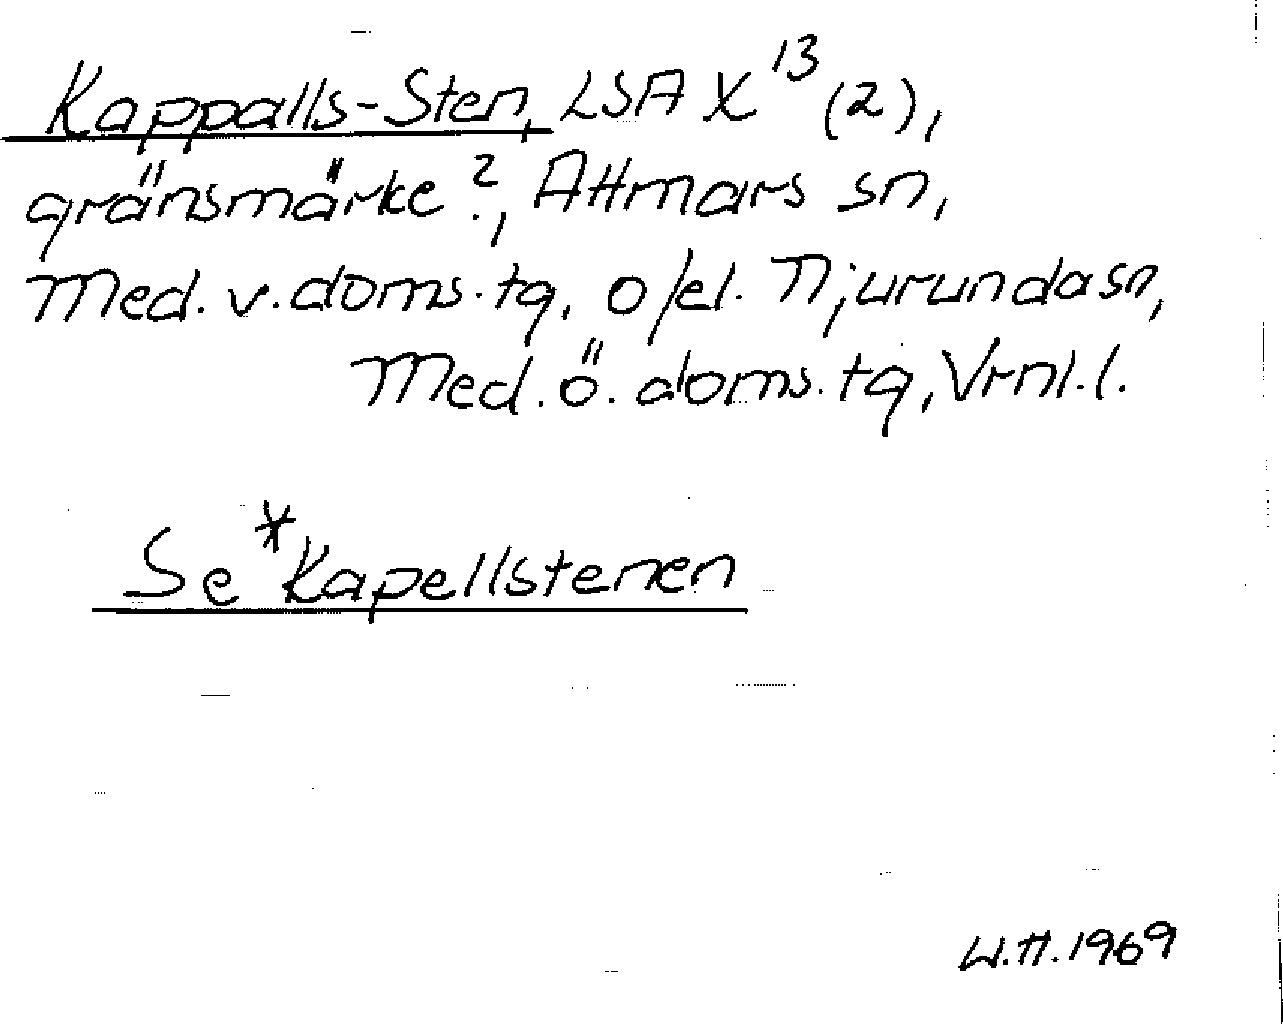 Kappalls-Sten, LSA X¹³ (2),
gränsmärke?, Attmars sn,
Med. v. doms. tg, o/el. Njurunda sn,
Med. ö. doms. tg, Vrnl. l.
Se *Kapellstenen
W.H. 1969